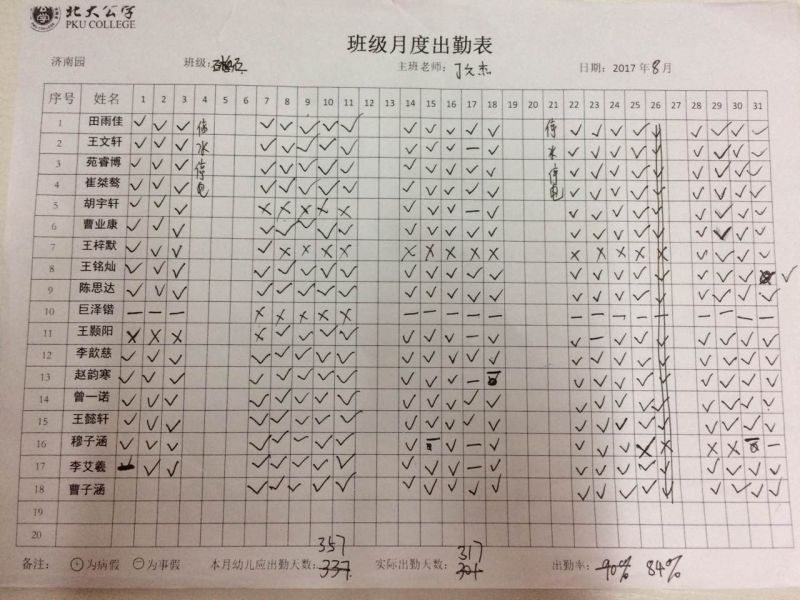 北大公学
PKU COLLEGE
班级月度出勤表
济南园 班级: 主班老师: 丁文杰 日期: 2017年8月
序号 姓名 1 2 3 4 5 6 7 8 9 10 11 12 13 14 15 16 17 18 19 20 21 22 23 24 25 26 27 28 29 30 31
1 田雨佳 停 停
2 王文轩 水 水
3 苑睿博 停 停
4 崔桀骜 电 电
5 胡宇轩
6 曹业康
7 王梓默
8 王铭灿
9 陈思达
10 巨泽锴
11 王颢阳
12 李歆慈
13 赵韵寒
14 曾一诺
15 王懿轩
16 穆子涵
17 李艾羲
18 曹子涵
19
20
357 317
备注: +为病假 −为事假 本月幼儿应出勤天数: 337 实际出勤天数: 出勤率: 90% 84%